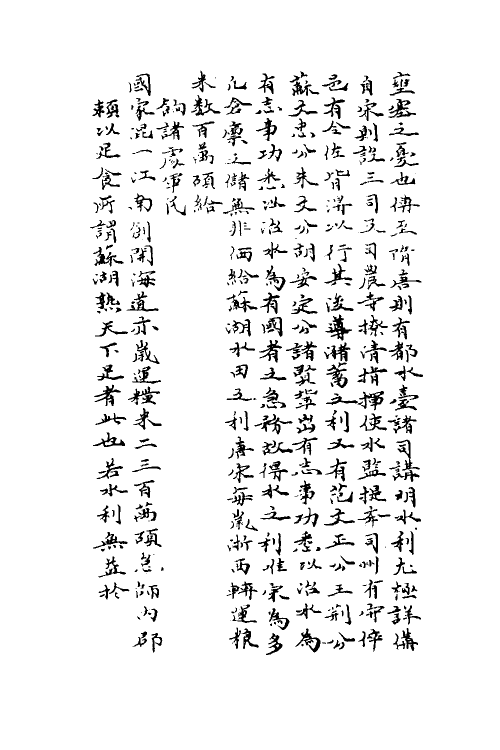 壅塞之憂也傳至隋唐則有都水臺諸司講明水利尤極詳備
自宋則設三司又司農寺撩清指揮使水監提舉司州有守倅
邑有令佐皆得以行其浚導瀦蓄之利又有范文正公王荆公
蘇文忠公朱文公胡安定公諸賢輩出有志事功悉以治水為
有志事功悉以治水為有國者之急務故得水之利惟宋為多
凡倉廩之儲無非仰給蘇湖水田之利唐宋每嵗浙西轉運粮
米数百萬碩給
餉諸處軍民
國家混一江南創開海道亦嵗運糧米二三百萬碩京師内郡
賴以足食所謂蘇湖熟天下足者此也若水利無益於